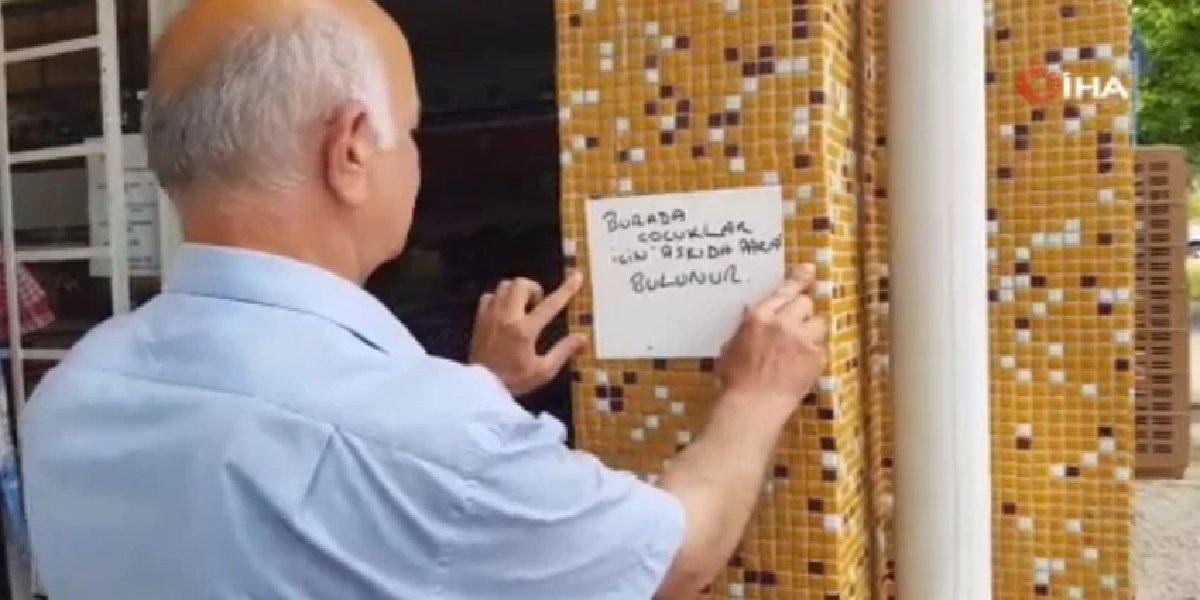 BURADA
ÇOCUKLAR
İÇİN ASKIDA
BULUNUR.
İHA